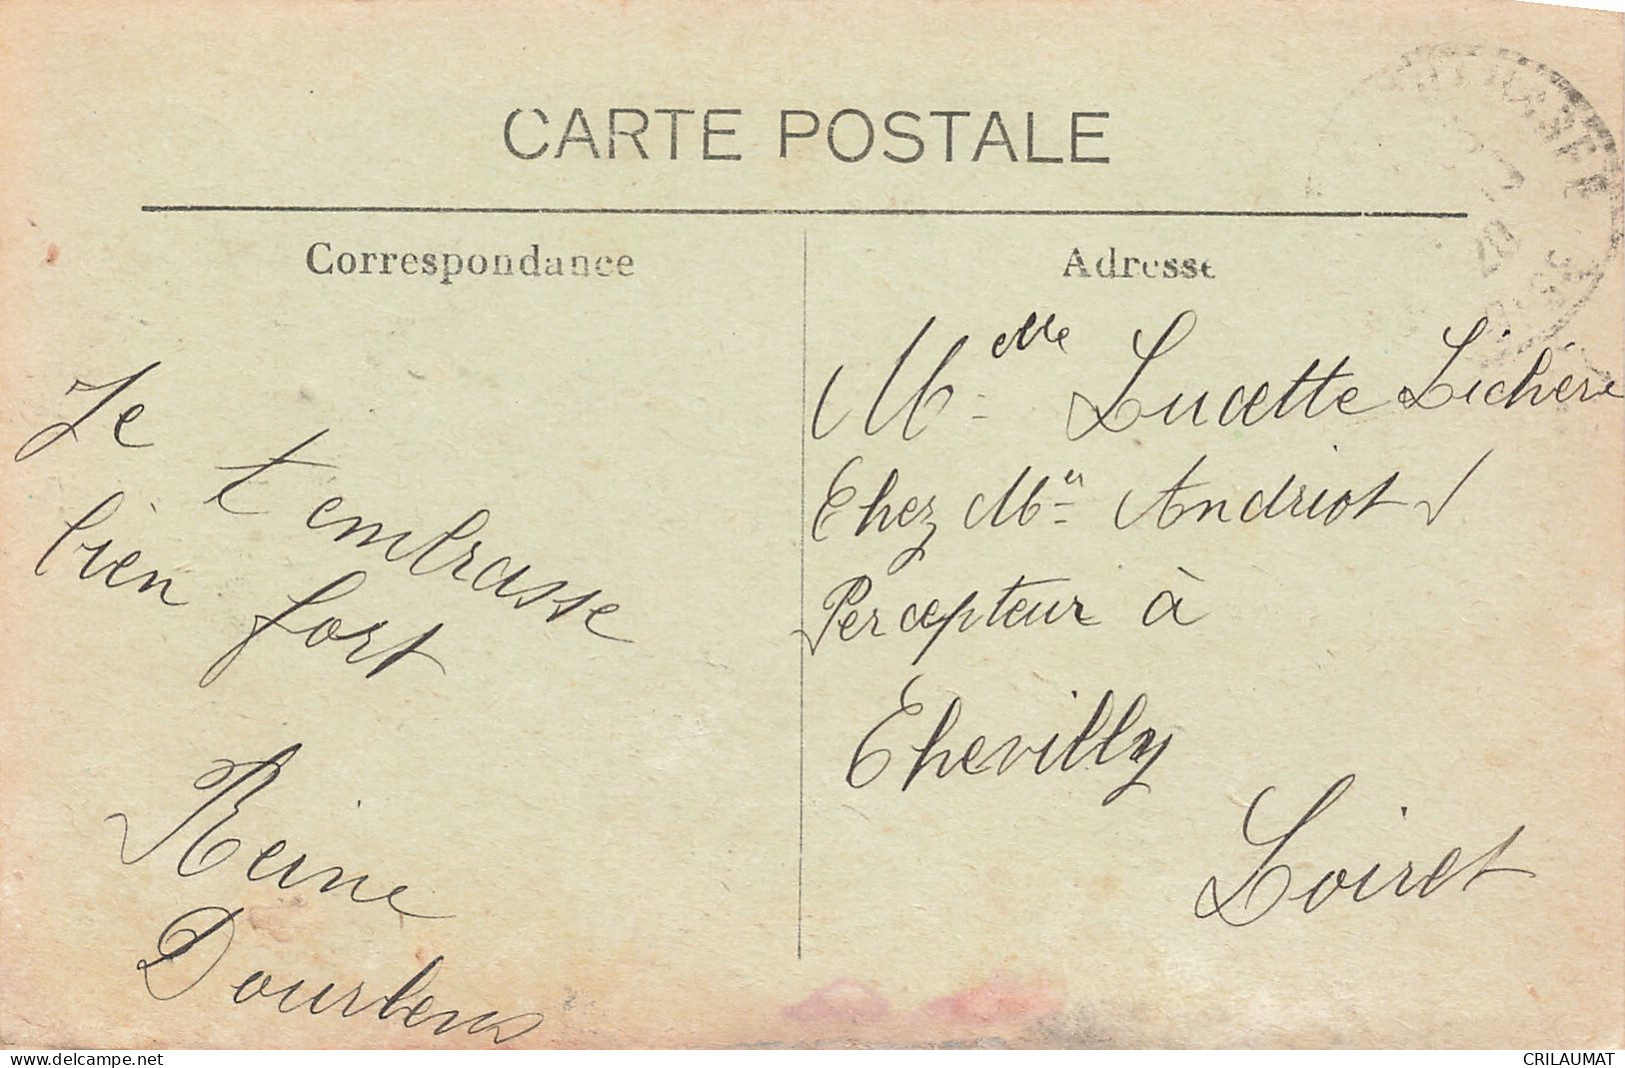 CARTE POSTALE
Correspondance
Je t embrasse
bien fort
Reine
Dourlens
Adresse
Melle Lucette Lichère
Chez Mr Andriot
Percepteur à
Chevilly
Loiret
www.delcampe.net
CRILAUMAT